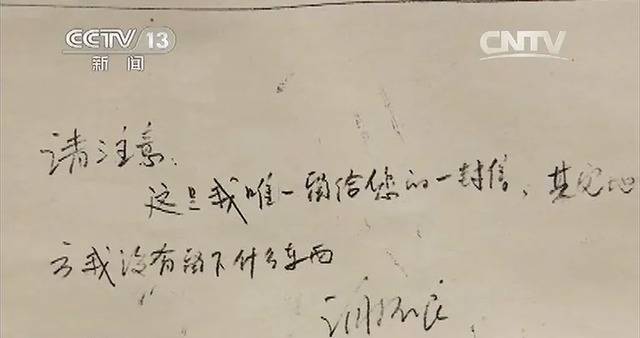 CCTV 13
新闻
CNTV
请注意:
这是我唯一留给您的一封信,其它地
方我没有留下什么东西